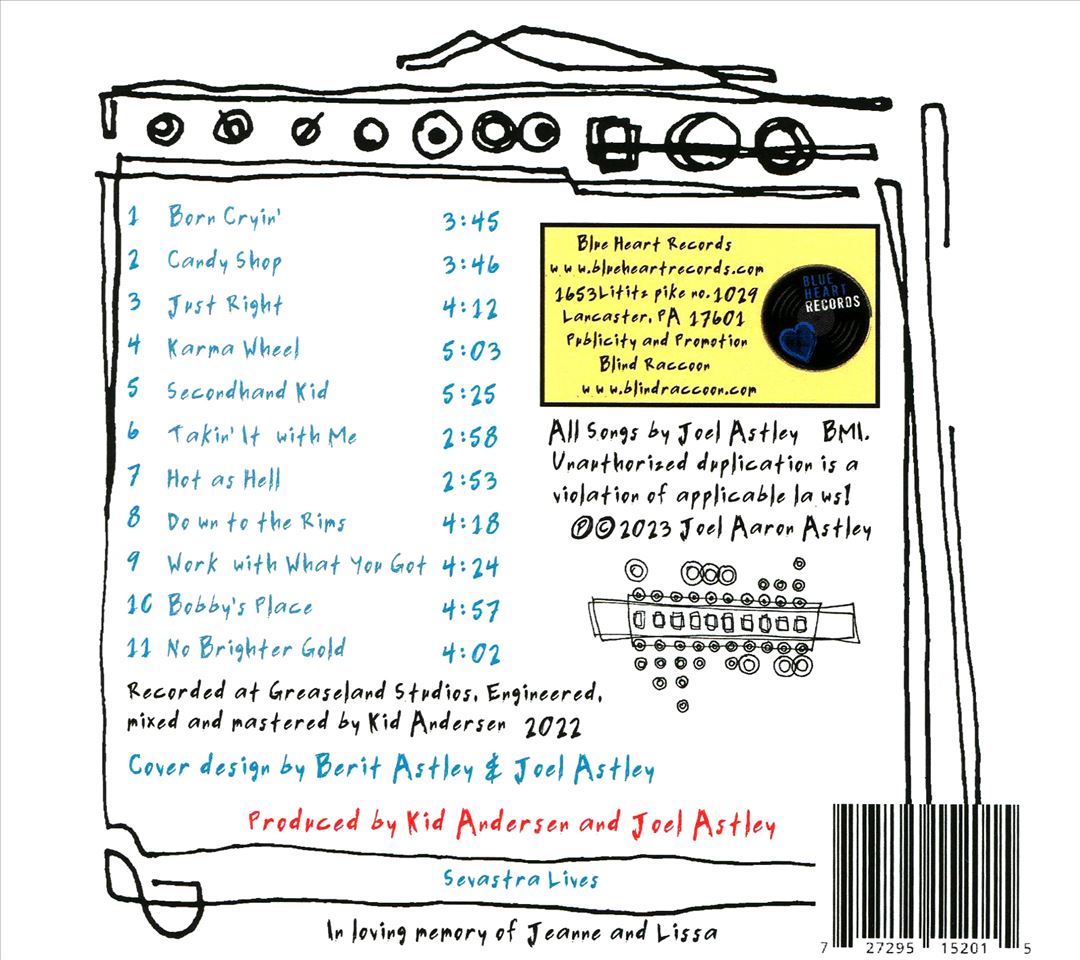 1 Born Cryin' 3:45
2 Candy Shop 3:46
3 Just Right 4:12
4 Karma Wheel 5:03
5 Secondhand Kid 5:25
6 Takin' It with Me 2:58
7 Hot as Hell 2:53
8 Down to the Rims 4:18
9 Work with What You Got 4:24
10 Bobby's Place 4:57
11 No Brighter Gold 4:02
Recorded at Greaseland Studios. Engineered,
mixed and mastered by Kid Andersen 2022
Cover design by Berit Astley & Joel Astley
Produced by Kid Andersen and Joel Astley
Sevastra Lives
In loving memory of Jeanne and Lissa
Blue Heart Records
www.blueheartrecords.com
1653 Lititz pike no. 1029
Lancaster, PA 17601
Publicity and Promotion
Blind Raccoon
www.blindraccoon.com
BLUE
HEART
RECORDS
All Songs by Joel Astley BMI.
Unauthorized duplication is a
violation of applicable laws!
℗©2023 Joel Aaron Astley
7 27295 15201 5